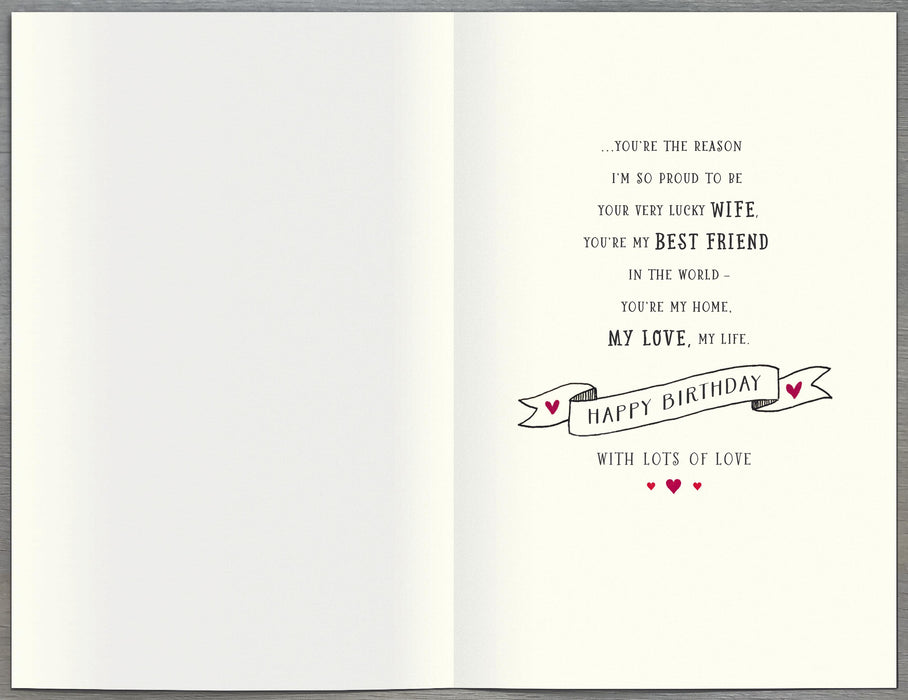 ...YOU'RE THE REASON
I'M SO PROUD TO BE
YOUR VERY LUCKY WIFE,
YOU'RE MY BEST FRIEND
IN THE WORLD –
YOU'RE MY HOME,
MY LOVE, MY LIFE.
HAPPY BIRTHDAY
WITH LOTS OF LOVE